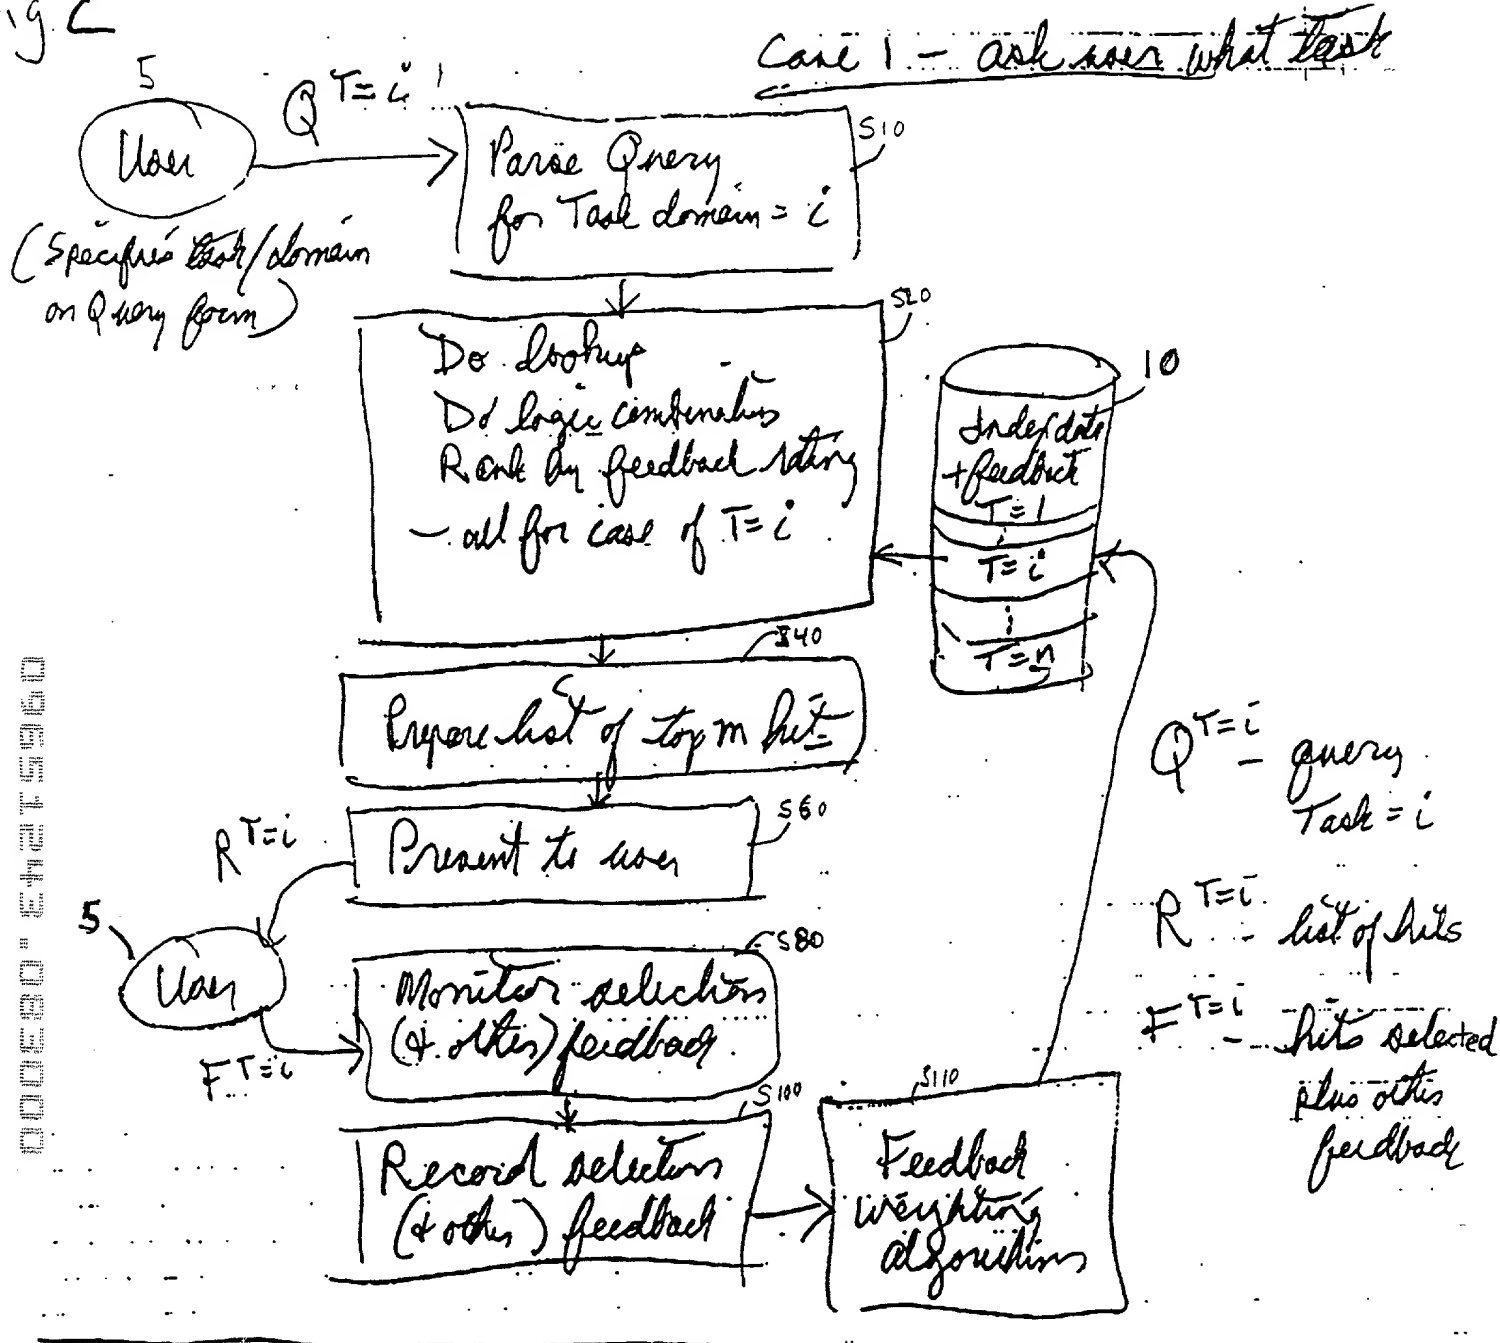 Fig 2
Case 1 - ask user what task
5
Q T=i
User
(Specifies task/domain
on Query form)
Parse Query
for Task domain = i
S10
Do lookup
Do logic combinations
Rank by feedback rating
- all for case of T=i
S20
10
Index data
+ feedback
T=1
T=i
T=n
Prepare list of top m hits
S40
Present to user
S60
R T=i
5
User
F T=i
Monitor selections
(& other) feedback
S80
Record selections
(& other) feedback
S100
Feedback
weighting
algorithms
S110
Q T=i - query
Task = i
R T=i - list of hits
F T=i - hits selected
plus other
feedback